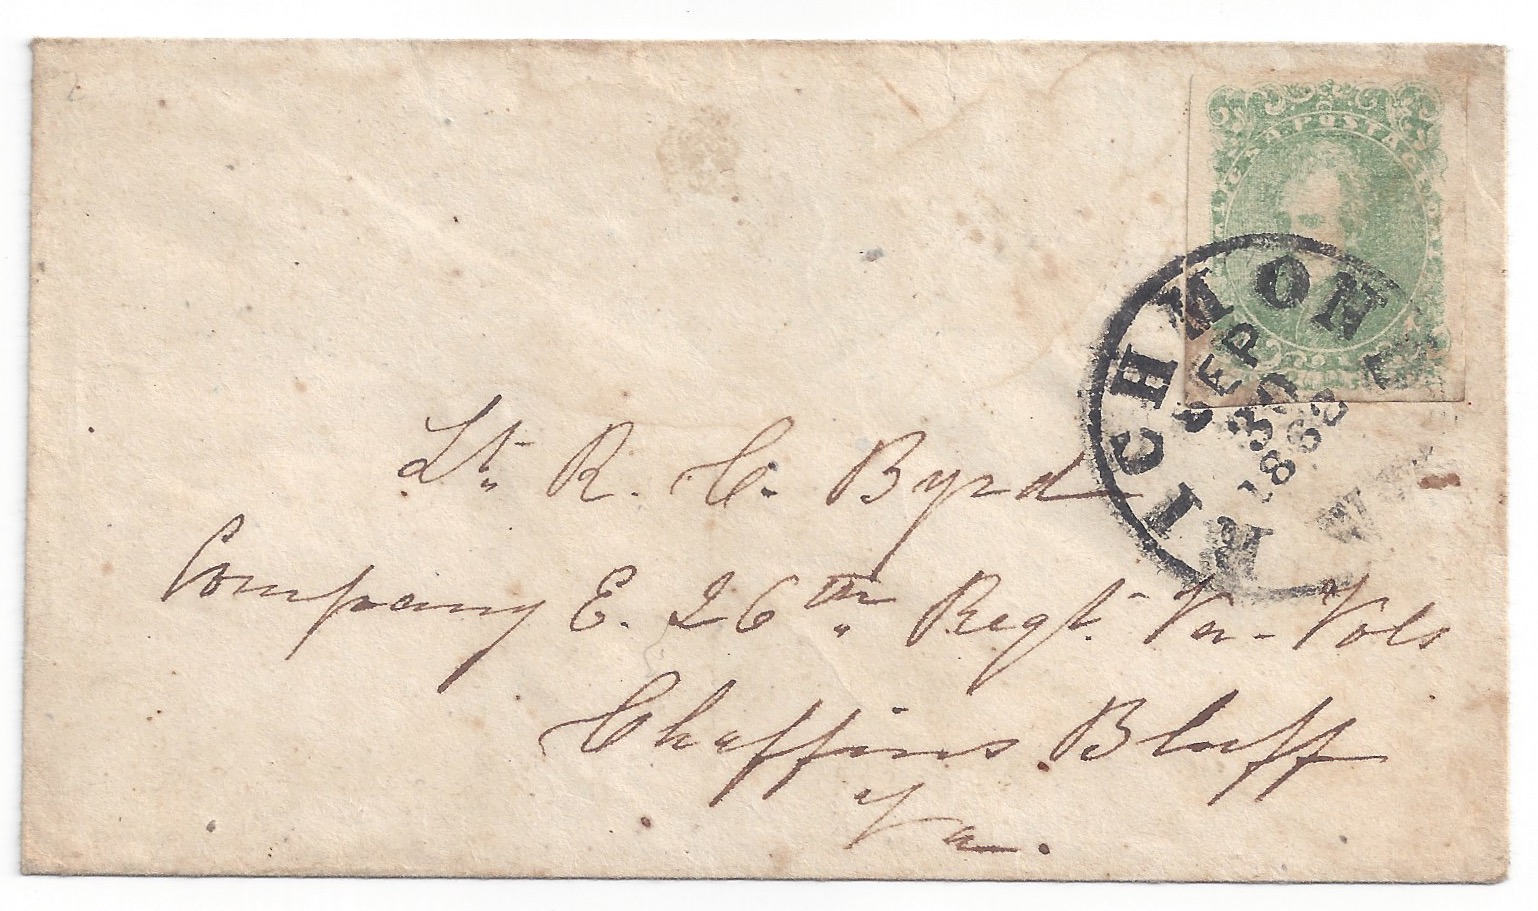 POSTA
RICHMOND
SEP
30
1862
Lt. R. C. Byrd
Company E. 26th Regt. Va. Vols
Chaffins Bluff
Va.